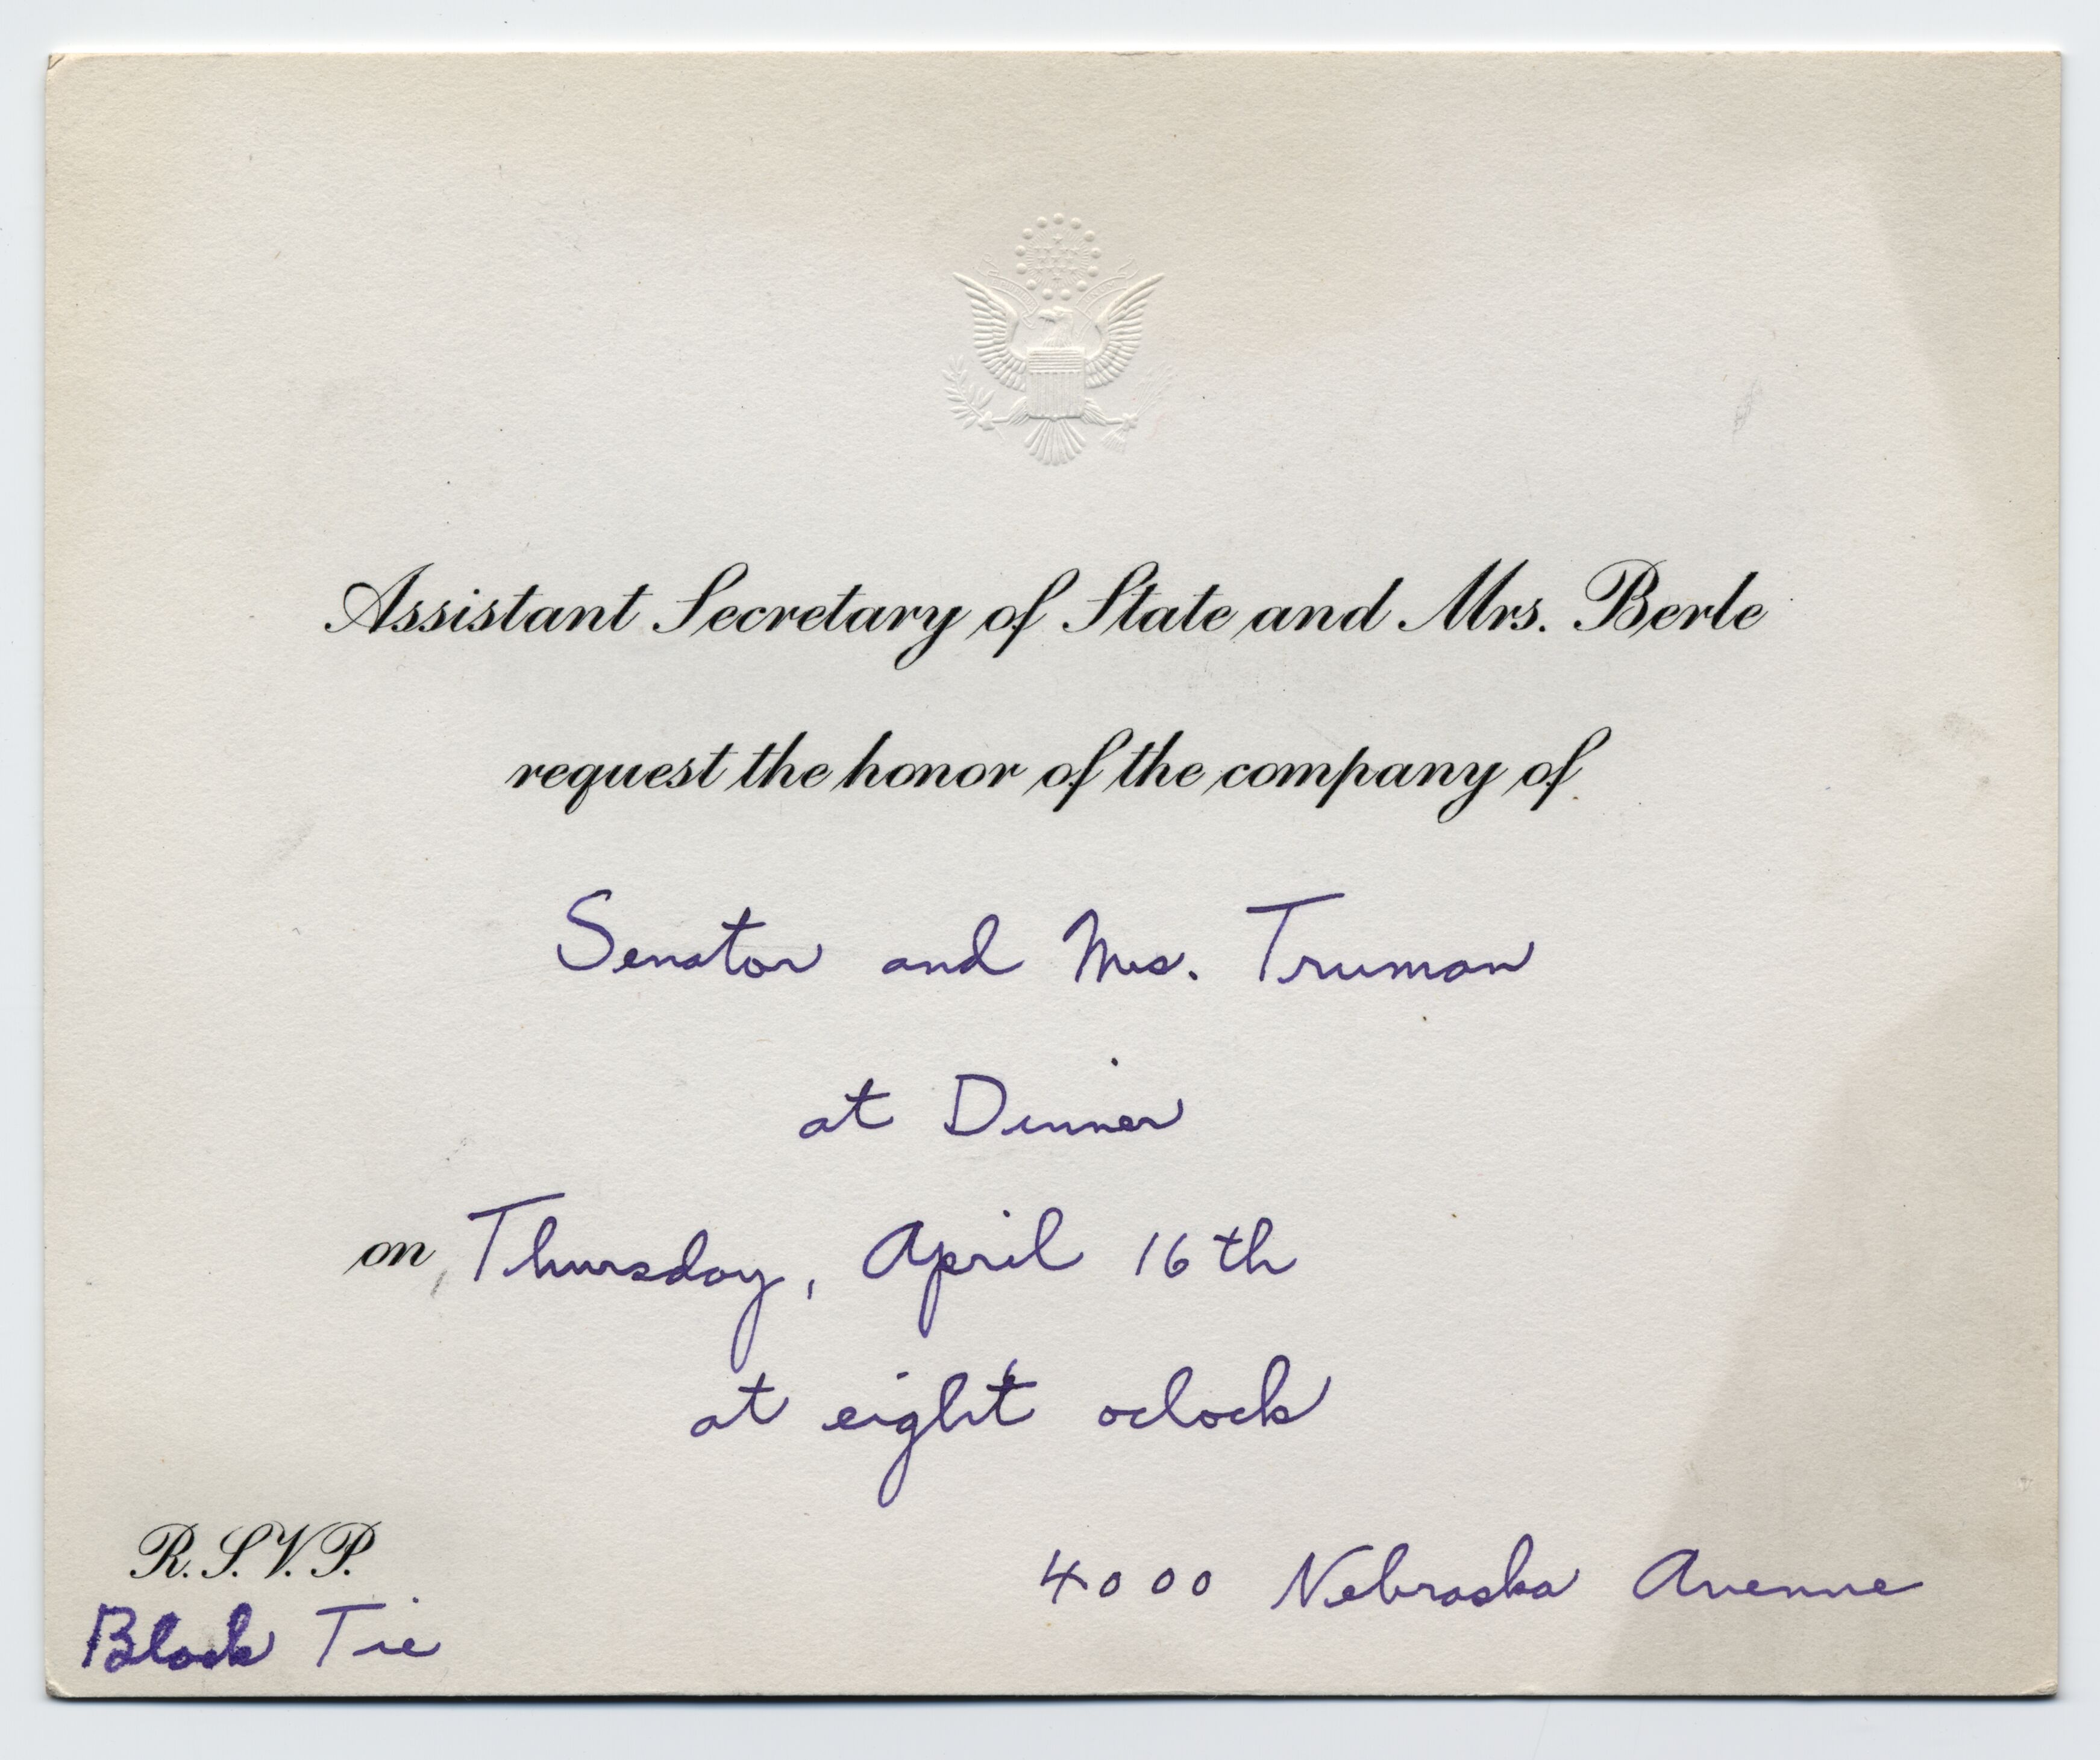 Assistant Secretary of State and Mrs. Berle
request the honor of the company of
Senator and Mrs. Truman
at Dinner
on Thursday, April 16th
at eight oclock
R.S.V.P.
4000 Nebraska Avenue
Black Tie